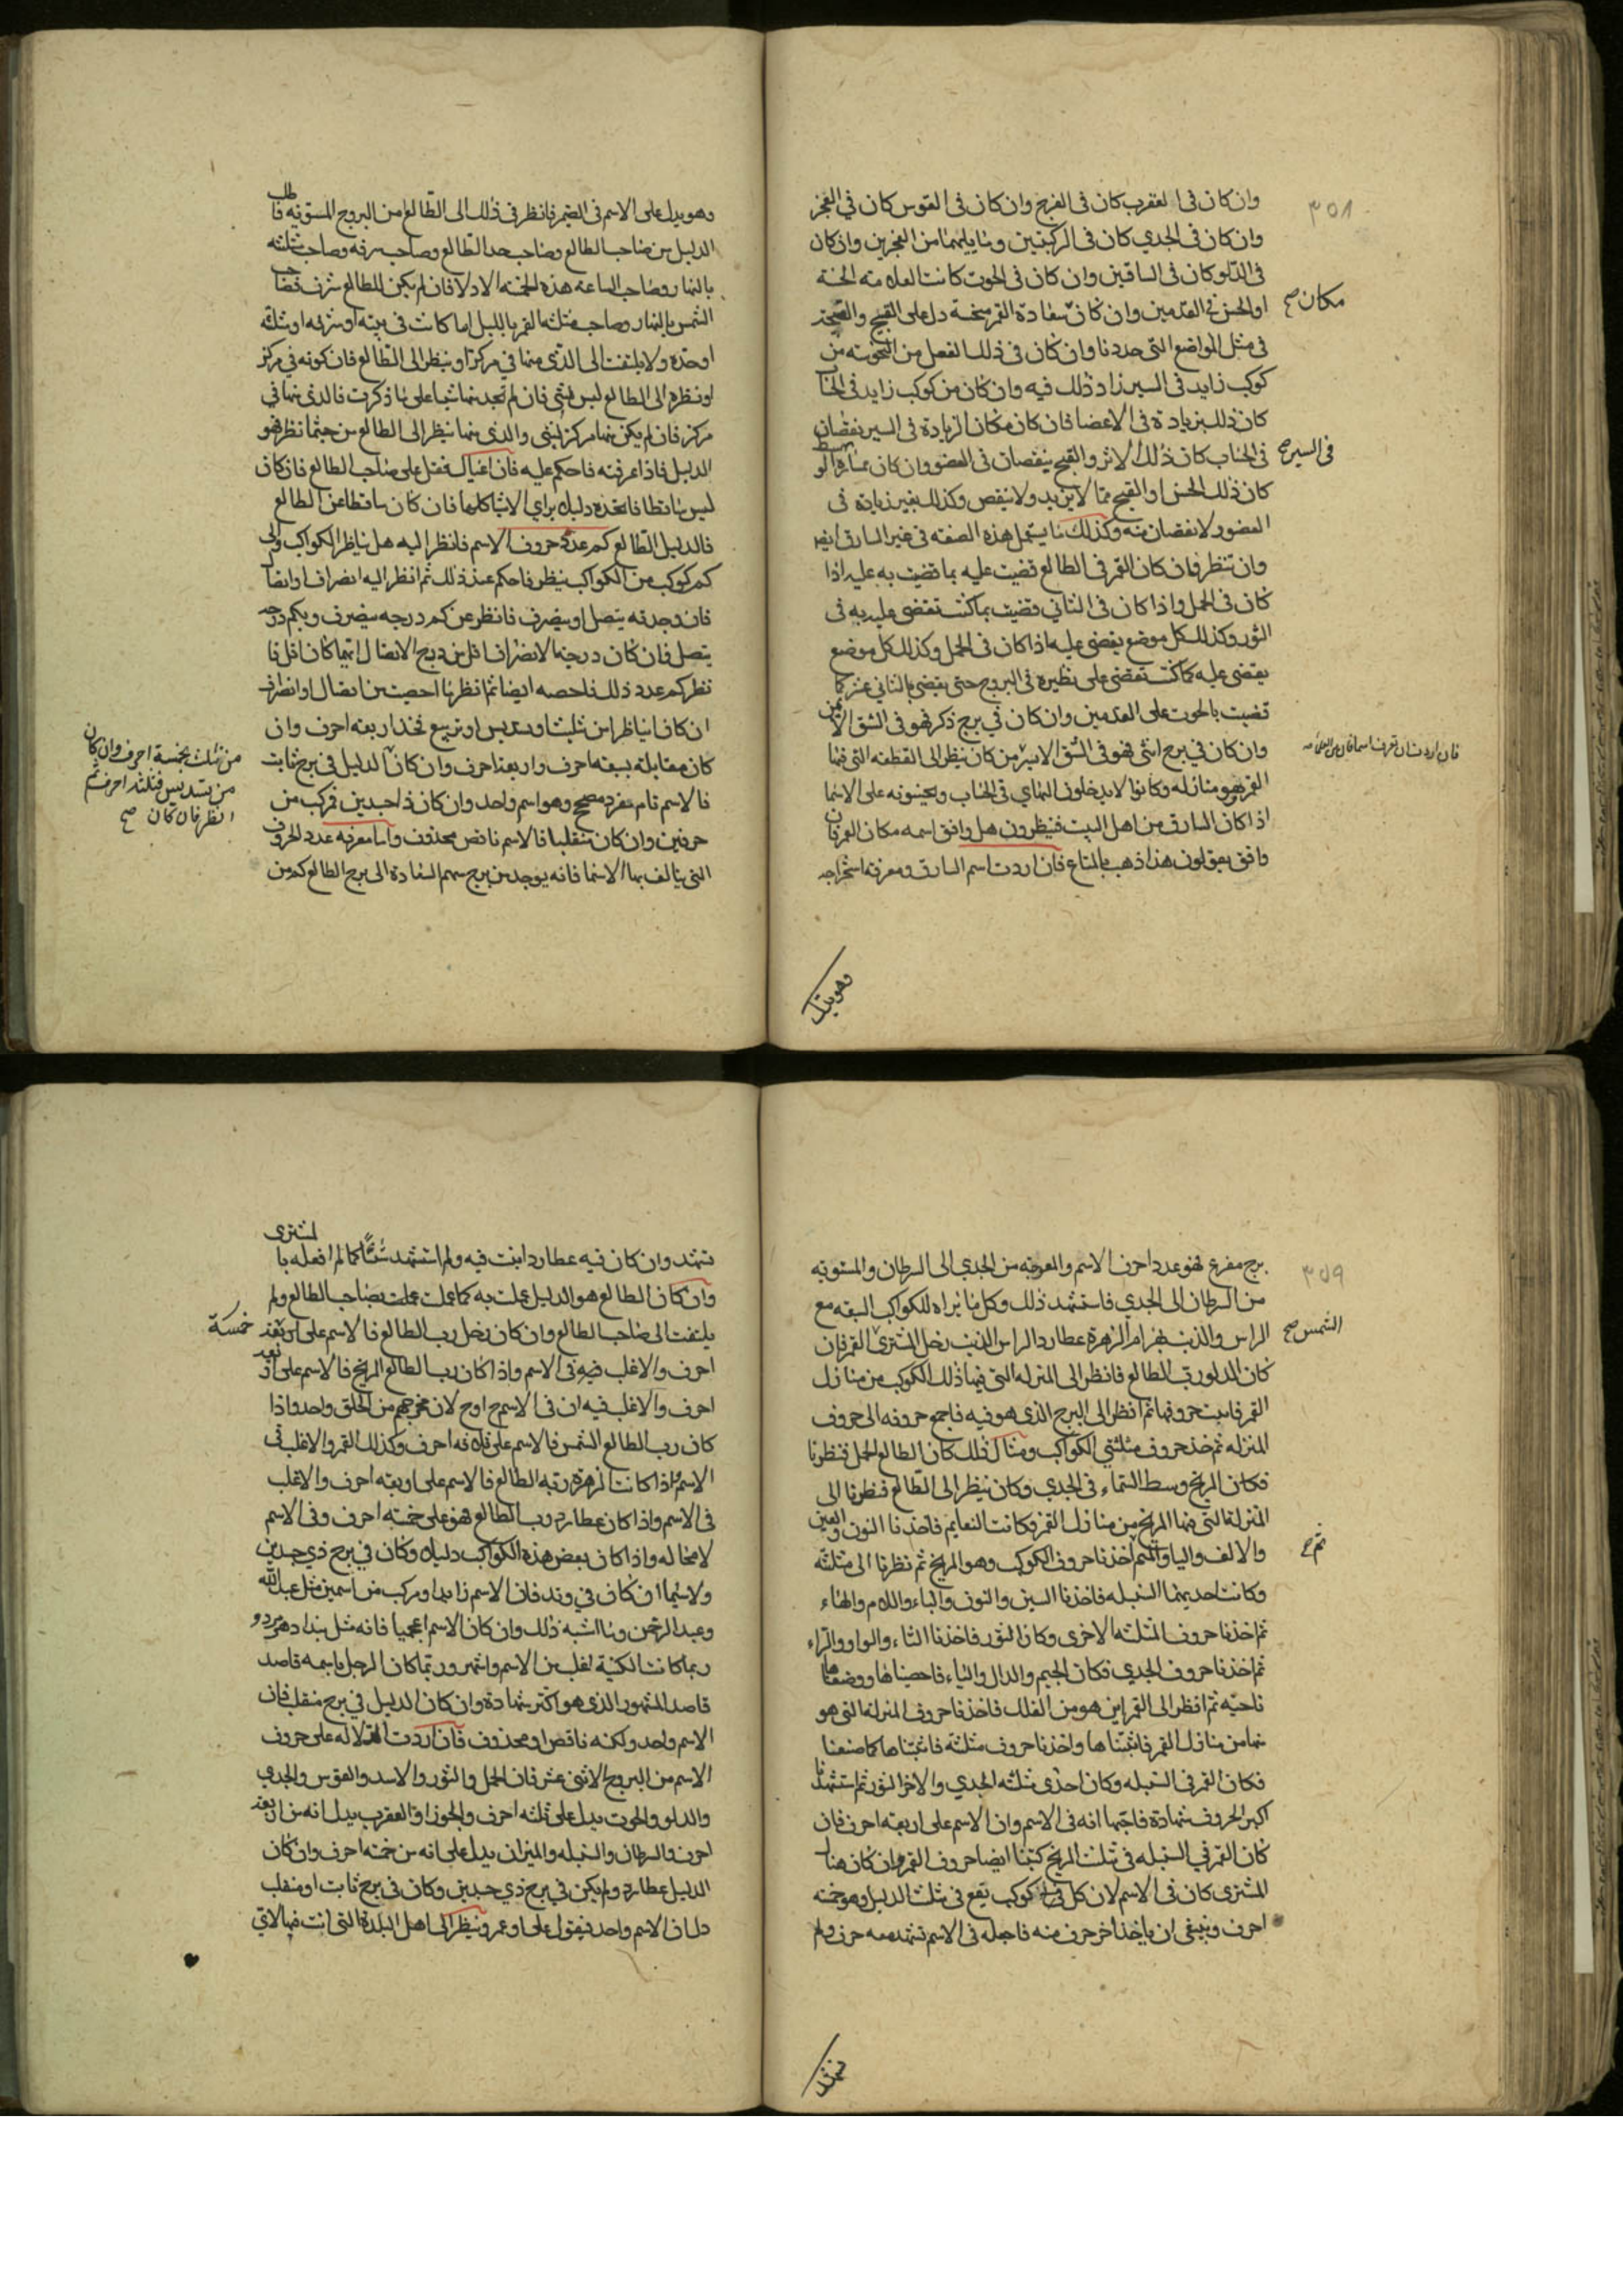 ٣٥٨
وان كان في العقرب كان في الفرج وان كان في القوس كان في الفخذ
وان كان في الجدي كان في الركبتين وما يليهما من الفخذين وان كان
في الدلو كان في الساقين وان كان في الحوت كانت العلامة الحسنة
مكان صح
او الحسن في القدمين وان كان سعادة القمر منحسة دل على القبح والسمجة
في مثل المواضع التي حددنا وان كان في ذلك الفعل من النحوسة من
كوكب زايد في السير زاد ذلك فيه وان كان من كوكب زايد في الحساب
كان ذلك بزيادة في الاعضا فان كان مكان الزيادة في السير نقصان
في السير صح
في الحساب كان ذلك الاثر والقبح بنقصان في العضو وان كان
كان ذلك الحسن او القبح مما لا يزيد ولا ينقص وكذلك بغير زيادة في
العضو ولا نقصان منه وكذلك ما يستعمل هذه الصفة في غير السارق ايضا
وان تنظر فان كان القمر في الطالع قضيت عليه بما قضيت به عليه اذا
كان في الحمل واذا كان في الثاني قضيت بما كنت تقضي عليه به في
الثور وكذلك كل موضع يقضي عليه اذا كان في الحمل وكذلك كل موضع
يقضي عليه كما كنت تقضي على نظيره في البروج حتى يقضي بالثاني عشر كما
قضيت بالحوت على القدمين وان كان في برج ذكر فهو في الشق الايمن
وان كان في برج انثى فهو في الشق الايسر من كان ينظر الى القطعة التي فيها
فان اردت ان تعرف اسما
القمر هو منازله وكانوا لا يدخلون النهاي في الحساب ويحبسونه على الاسما
اذا كان السارق من اهل البيت فينظرون هل وافق اسمه مكان القمر فان
وافق يقولون هذا ذهب بالمتاع فان اردت اسم السارق ومعرفة استخراجه
وهو يدل
وهو يدل على الاسم في الضمير فانظر في ذلك الى الطالع من البروج المستوية فاطلب
الدليل من صاحب الطالع وصاحب حد الطالع وصاحب شرفه وصاحب مثلثته
بالنهار وصاحب الساعة هذه الخمسة الادلا فان لم يكن للطالع شرف فصاحب
الشمس بالنهار وصاحب مثلثه القمر بالليل اما كانت في بيته او شرفه او مثلثه
او حده ولا يلتفت الى الذي منها في مركز او ينظر الى الطالع فان كونه في مركز
او نظره الى الطالع ليس بشي فان لم تجد منها شيا على ما ذكرت فالذي منها في
مركز فان لم يكن منها مركز لشي والذي منها ينظر الى الطالع من حيثما نظر فهو
الدليل فاذا عرفته فاحكم عليه فان اعياك فقل على صاحب الطالع فان كان
ليس ساقطا فاتخذه دليلك براي الاشيا كلها فان كان ساقطا عن الطالع
فالدليل الطالع كم عدة حروف الاسم فانظر اليه هل يناظر الكواكب والى
كم كوكب من الكواكب ينظر فاحكم عند ذلك ثم انظر اليه انصرافا واتصالا
فان وجدته يتصل او ينصرف فانظر عن كم درجه ينصرف وبكم درجه
يتصل فان كان درجة الانصراف اقل من درج الاتصال ايهما كان اقل فا
نظر كم عدد ذلك فاحصه ايضا ثم انظر ما احصيت من اتصال او انصراف
ان كانا يناظر من تثليث او تسديس او تربيع فخذ اربعة احرف وان
كان مقابلة سبعة احرف واربعة احرف وان كان الدليل في برج ثابت
من تثليث بخمسة احرف وان كان
من تسديس فثلثه احرف ثم
انظر فان كان صح
فالاسم تام مفرد صحيح وهو اسم واحد وان كان ذا جسدين فركب من
حرفين وان كان منقلبا فالاسم ناقص محذوف واما معرفه عدد الحروف
التي يتالف بها الاسما فانه يوجد من برج سهم السعادة الى برج الطالع كم من
٣٥٩
برج مفرع فهو عدد احرف الاسم والمعوجة من الجدي الى السرطان والمستوية
من السرطان الى الجدي فاستشهد ذلك وكل ما نراه للكواكب السبعه مع
الشمس صح
الراس والذنب بهرام الزهرة عطارد الراس الذنب زحل المشتري القمر فان
كان الدلو رب الطالع فانظر الى المنزله التي فيها ذلك الكوكب من منازل
القمر فاثبت حروفها ثم انظر الى البرج الذي هو فيه فاجمع حروفه الى حروف
المنزله ثم خذ حروف مثلثتي الكواكب ومثال ذلك كان الطالع الحمل فنظرنا
فكان المريخ وسط السماء في الجدي وكان ينظر الى الطالع فنظرنا الى
المنزلة التي فيها المريخ من منازل القمر وكانت النعايم فاخذنا النون والعين
والالف واليا والميم اخذنا حروف الكوكب وهو المريخ ثم نظرنا الى مثلثه
وكانت احديهما السنبله فاخذنا السين والنون والباء واللام والهاء
ثم اخذنا حروف المثلثه الاخرى وكان الثور فاخذنا الثاء والواو والراء
ثم اخذنا حروف الجدي فكان الجيم والدال والياء فاحصيناها ووضعناها
ناحيه ثم انظر الى القمر اين هو من الفلك فاخذنا حروف المنزله التي هو
فيها من منازل القمر فاثبتناها واخذنا حروف مثلثه فاثبتناها كما صنعنا
فكان القمر في السنبله وكان احدى مثلثه الجدي والاخر الثور ثم استشهدنا
اكبر الحروف شهادة فاجتمعا انه في الاسم وان الاسم على اربعه احرف فان
كان القمر في السنبله في تثليث المريخ كتبنا ايضا حروف القمر وان كان هناك
المشتري كان في الاسم لان كل كوكب يقع في تثليث الدليل وهو خمسه
احرف وينبغي ان ياخذ اخر حرف منه فاجعله في الاسم تشهد معه حرف ولم
تشهد
تشهد وان كان فيه عطارد اثبت فيه ولم استشهد شيئا كما لم افعله بالمشتري
وان كان الطالع هو الدليل عملت به كما عملت بصاحب الطالع ولم
يلتفت الى صاحب الطالع وان كان زحل رب الطالع فالاسم على اربعة خمسة
احرف والاغلب فيه في الاسم واذا كان رب الطالع المريخ فالاسم على اربعه
احرف والاغلب فيه ان في الاسم ح او ح لان مخرجهم من الحلق واحد واذا
كان رب الطالع الشمس فالاسم على ثلثه احرف وكذلك القمر والاغلب في
الاسم واذا كانت الزهرة ربة الطالع فالاسم على اربعه احرف والاغلب
في الاسم واذا كان عطارد رب الطالع فهو على خمسه احرف وفي الاسم
لا محاله واذا كان بعض هذه الكواكب دليلك وكان في برج ذي جسدين
ولا سيما ان كان في وتد فان الاسم زايد او مركب من اسمين مثل عبد الله
وعبد الرحمن وما اشبه ذلك وان كان الاسم اعجميا فانه مثل
ربما كانت الكنية اغلب من الاسم واشهر وربما كان الرجل باسمه قاصد
قاصد المشهور الذي هو اكثر شهادة وان كان الدليل في برج منقلب فان
الاسم واحد ولكنه ناقص او محذوف فان اردت الدلاله على حروف
الاسم من البروج الاثني عشر فان الحمل والثور والاسد والقوس والجدي
والدلو والحوت يدل على ثلثه احرف والجوزا والعقرب يدل انه من اربعه
احرف والسرطان والسنبله والميزان يدل على انه من خمسه احرف وان كان
الدليل عطارد ولم يكن في برج ذي جسدين وكان في برج ثابت او منقلب
دل ان الاسم واحد فيقول على او عمرو وينظر الى اهل البلدة التي انت فيها لاتي